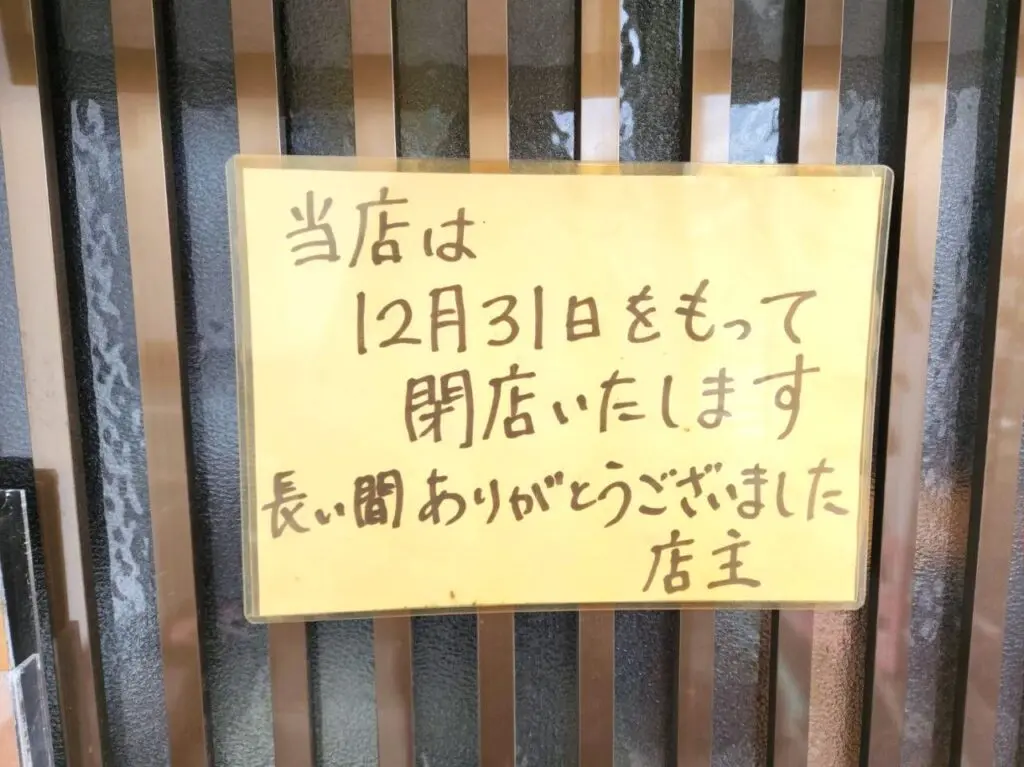 当店は
12月31日をもって
閉店いたします
長い間ありがとうございました
店主